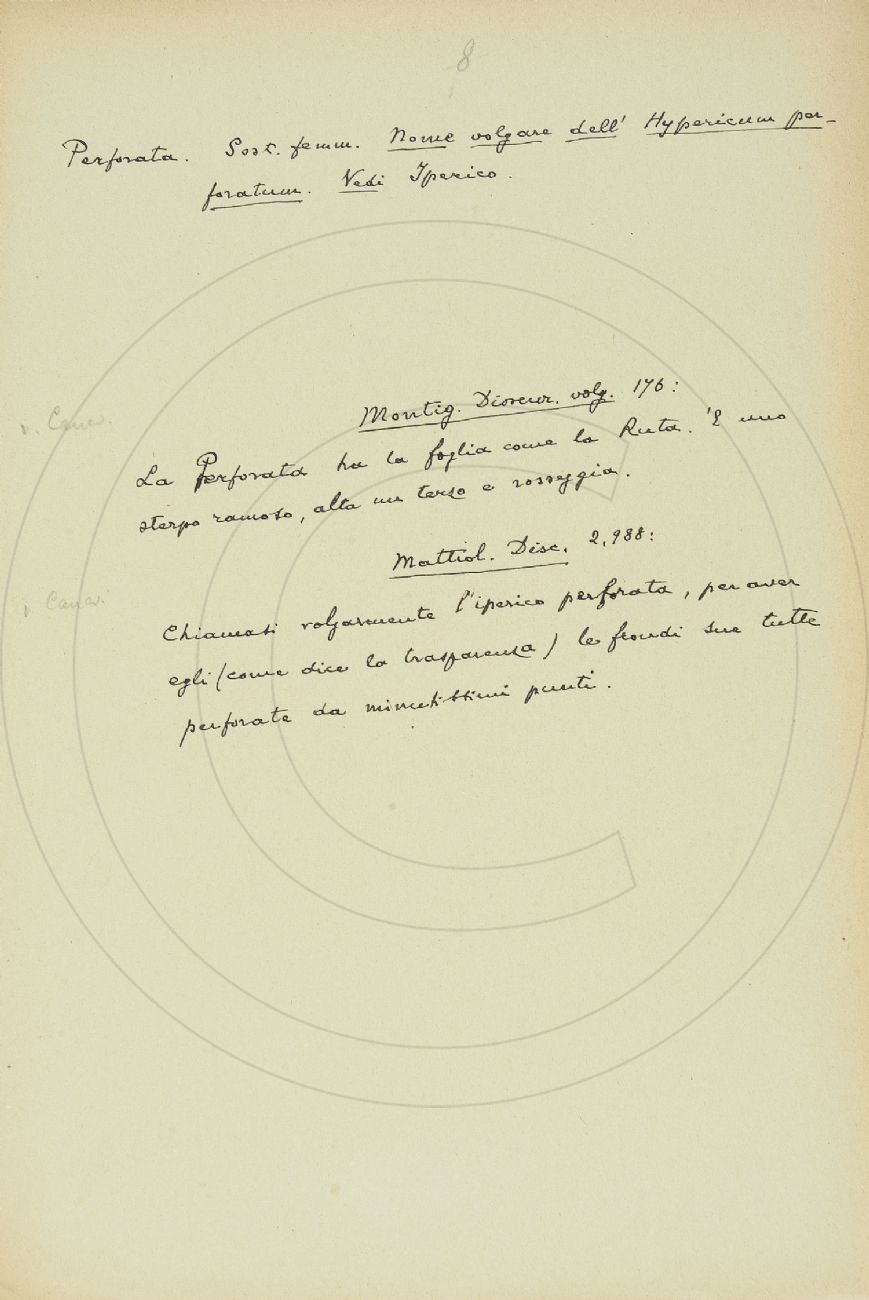 8
Perforata. Sost. femm. Nome volgare dell' Hypericum per-
foratum. Vedi Iperico.
Montig. Dioscur. volg. 176:
La Perforata ha la foglia come la Ruta. 'E uno
sterpo ramoso, alto un terzo e rosseggia.
Mattiol. Disc. 2,988:
Chiamasi volgarmente l'iperico perforata, per aver
egli (come dice la trasparenza) le frondi sue tutte
perforate da minutissimi punti.